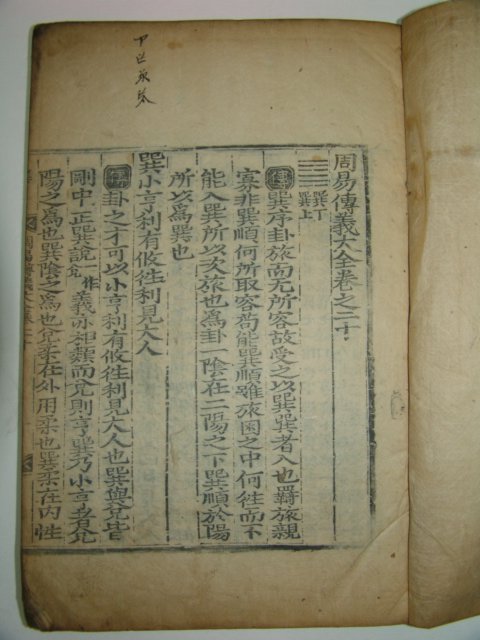 周易傳義大全卷之二十
巽下
巽上
傳巽序卦旅而无所容故受之以巽巽者入也羇旅親
寡非巽順何所取容苟能巽順雖旅困之中何徃而不
能入巽所以次旅也爲卦一陰在二陽之下巽順於陽
所以爲巽也
巽小亨利有攸徃利見大人
傳卦之才可以小亨利有攸徃利見大人也巽與兌皆
剛中正巽說一作義亦相類而兌則亨巽乃小亨者兌
陽之爲也巽陰之爲也兌柔在外用柔也巽柔在內性